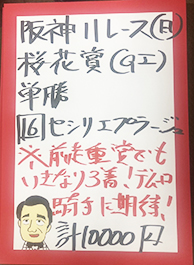 阪神11レース(日)
桜花賞(GI)
単勝
16 セシリエプラージュ
※前走重賞でも
いきなり3着!テン乗
騎手に期待!
計10000円